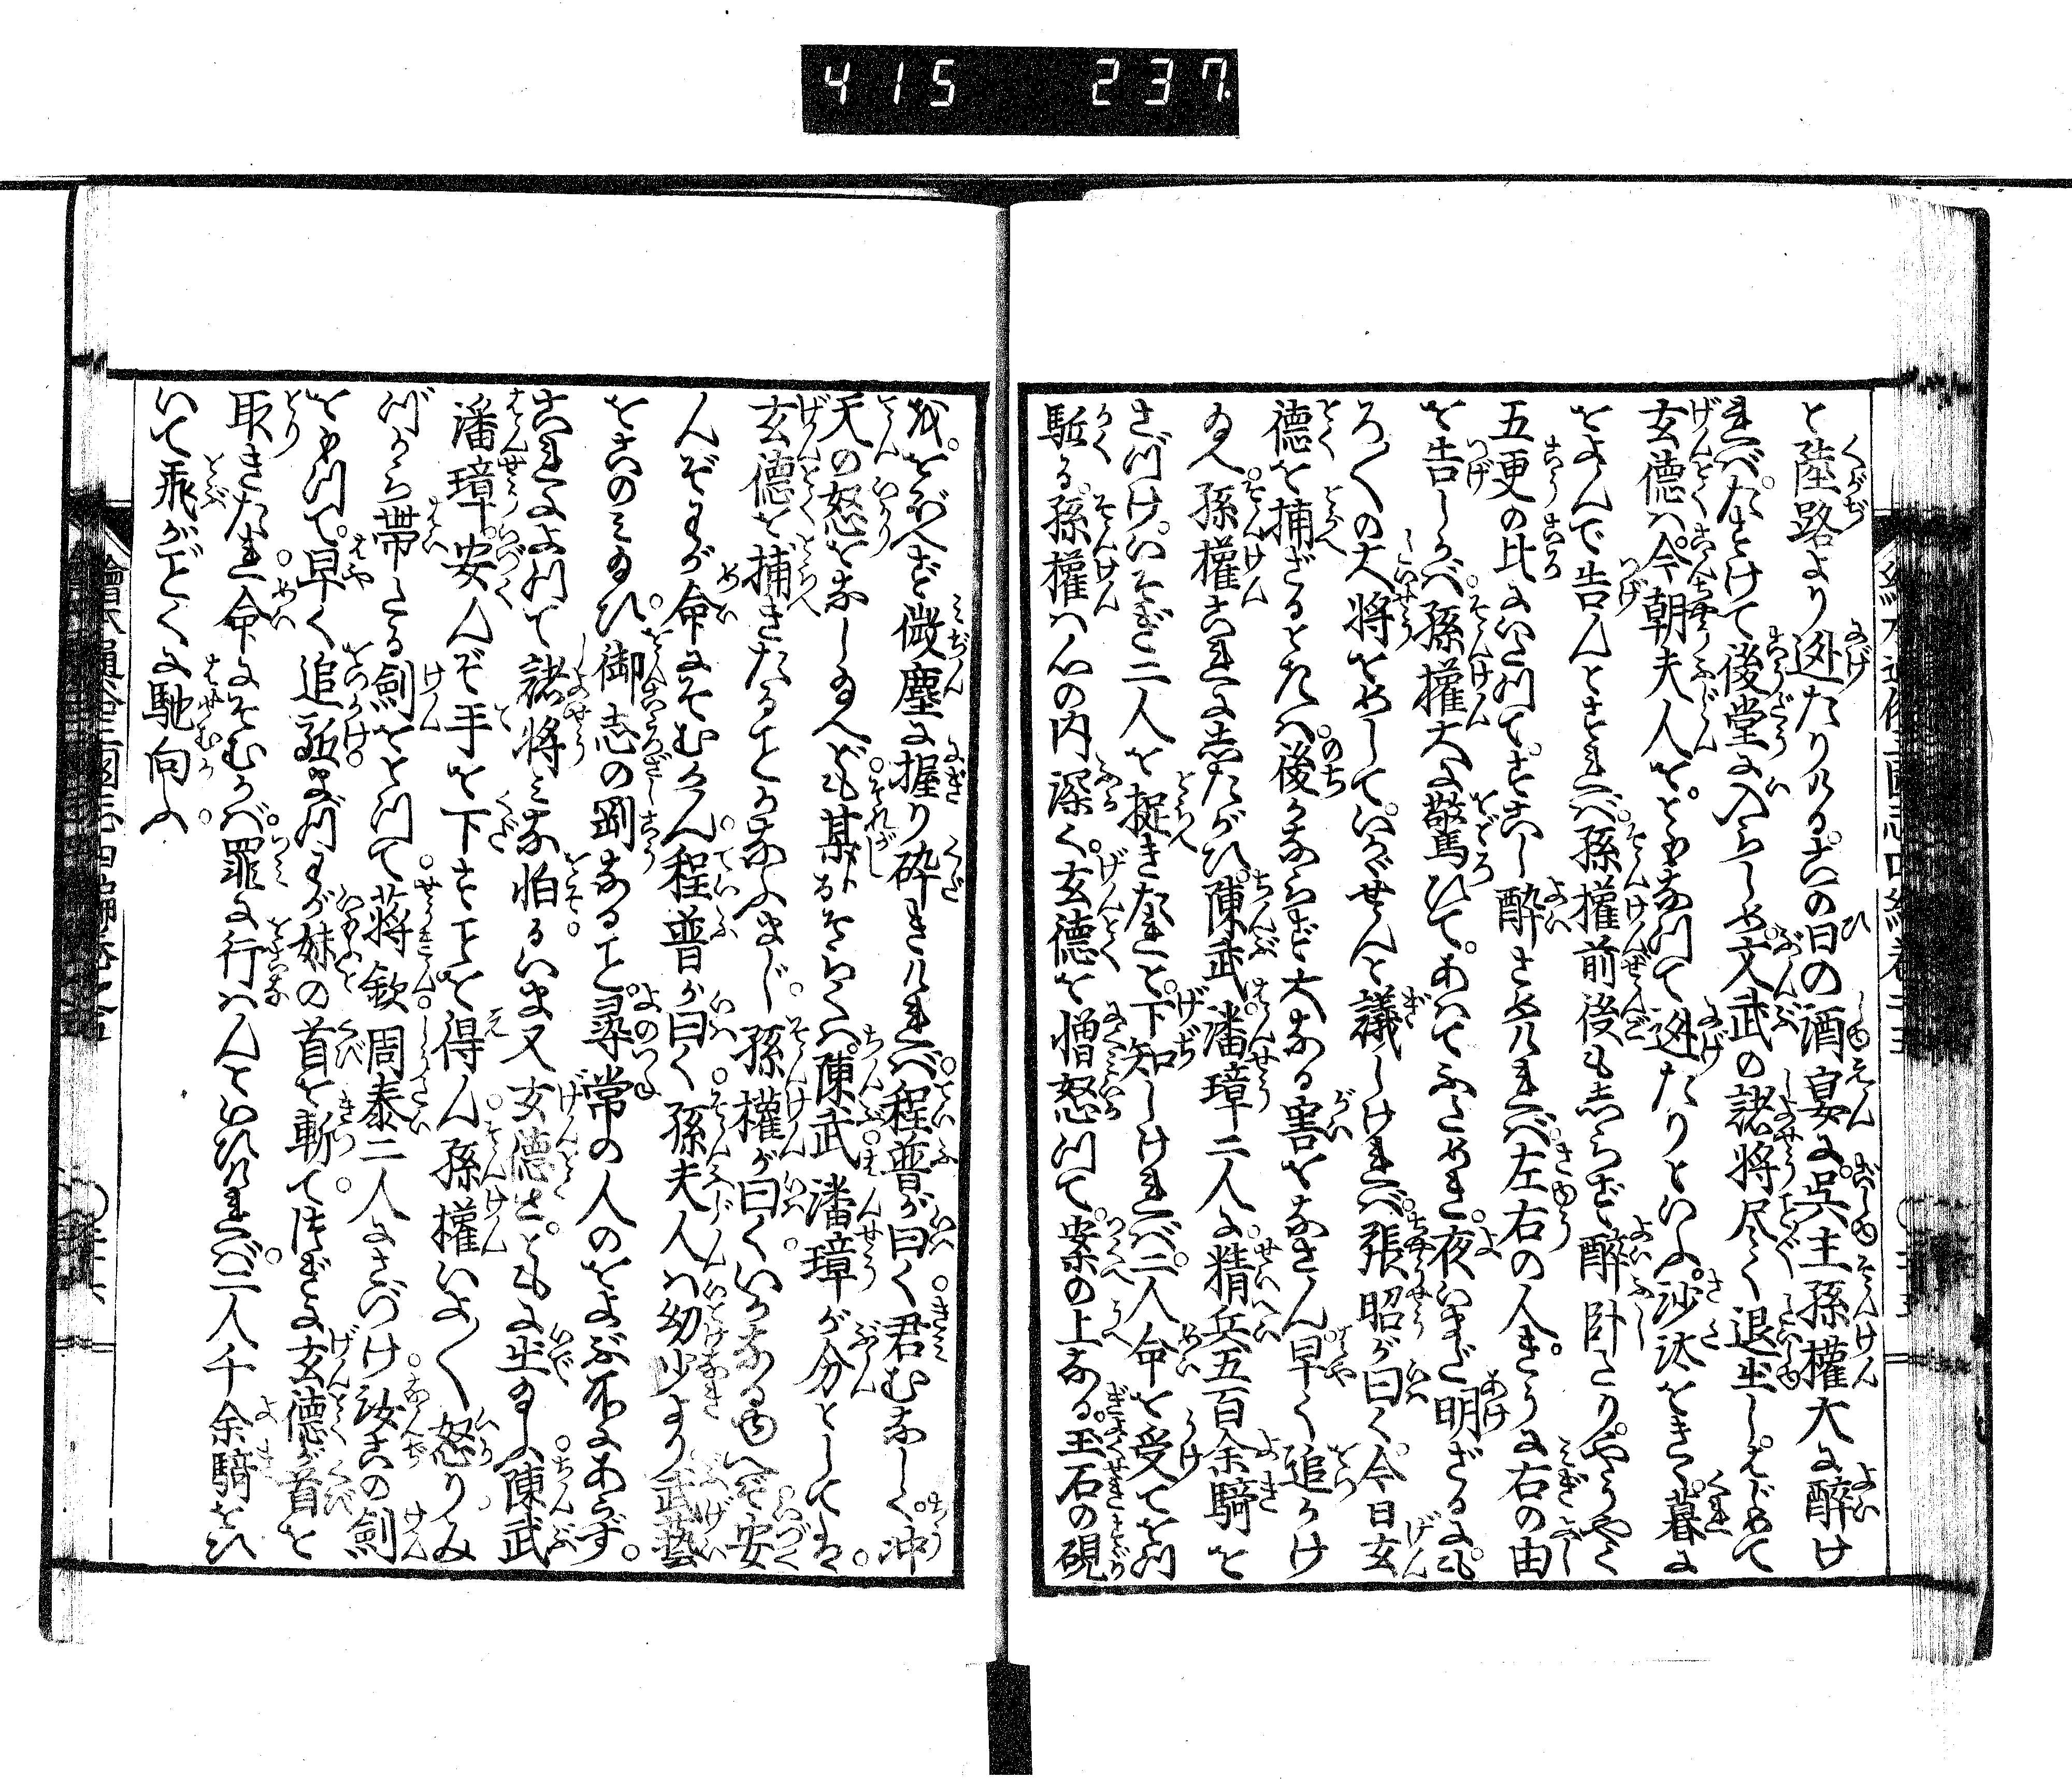 415 237
と陸路より迯たりける。此の日の酒宴に呉主孫權大に醉け
れバ。たすけて後堂に入らしめ。文武の諸將尽く退出し。はじめて
玄德ハ。今朝夫人を。ともなつて迯たりといふ。沙汰をきゝ暮に
をよんで告んとすれバ。孫權前後もしらず醉卧たり。やうやく
五更の比にいたつて。すこし醉さめけれバ。左右の人。きうに右の由
を告しかバ。孫權大に驚ひて。あハてふためき。夜いまだ明ざるに。も
ろ〱の大將をめして。いかゞせんと議しけれバ。張昭が曰く今日玄
德を捕ざるときハ。後かならず大なる害をなさん。早く追かけ
玉へ。孫權これにしたがひ。陳武。潘璋二人に。精兵五百余騎を
さづけ。いそぎ二人を捉きたれと。下知しけれバ。二人命を受てをつ
駈る。孫權ハ心の内深く。玄德を憎怒つて。案の上なる。玉石の硯
を。をぼへず微塵に握り碎きけれバ。程普が曰く。君むなしく。冲
天の怒をなし玉へども。某おそらくハ。陳武。潘璋が分としてハ。
玄德を捕きたることかなふまじ。孫權が曰く。いかなるゆへぞ安
んぞわが命にそむかん。程普が曰く。孫夫人ハ幼少より武藝
をこのみ玉ひ。御志の剛なること。尋常の人のをよぶ所にあらず。
これによつて諸將ミな怕る。いま又玄德と。ともに出玉ふ。陳武
潘璋。安んぞ手を下すことを得ん。孫權いよ〱怒りみ
づから帶たる劍をとつて。蔣欽。周泰二人にさづけ。汝この劍
をもつて。早く追駈。まづわが妹の首を斬て。つぎに玄德が首を
取きたれ。命にそむかバ。罪に行ハんといひけれバ。二人千余騎をひ
いて飛がごとくに馳向ふ。